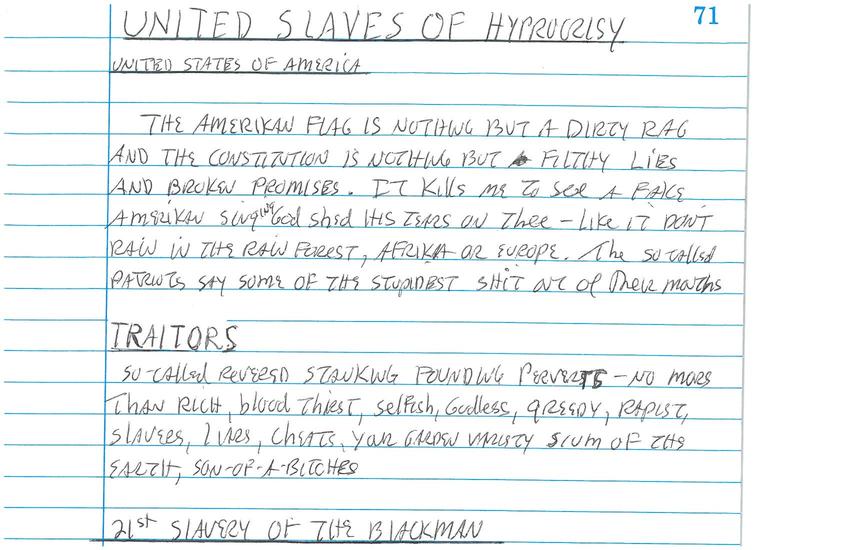 71
UNITED SLAVES OF HYPROCRISY
UNITED STATES OF AMERICA
THE AMERIKAN FLAG IS NOTHING BUT A DIRTY RAG
AND THE CONSTITUTION IS NOTHING BUT FILTHY LIES
AND BROKEN PROMISES. IT KILLS ME TO SEE A FAKE
AMERIKAN SINGING God shed HIS TEARS ON Thee - LIKE IT DON'T
RAIN IN THE RAIN FOREST, AFRIKA OR EUROPE. The SO-CALLED
PATRIOTS SAY SOME OF THE STUPIDEST SHIT OUT OF Their mouths
TRAITORS
SO-CALLED REVERED STANKING FOUNDING PERVERTS - NO MORE
THAN RICH, blood THIRST, selfish, Godless, GREEDY, RAPIST,
SLAVERS, LIARS, CHEATS, YOUR GARDEN VARIETY SCUM OF THE
EARTH, SON-OF-A-BITCHES
21st SLAVERY OF THE BLACKMAN